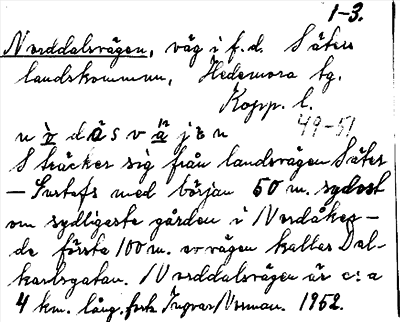 1-3.
Norddalsvägen, väg i f.d. Säters
landskommun, Hedemora tg.
Kopp. l.
49-51
Sträcker sig från landsvägen Säter
- Gustafs med början 50 m. sydost
om sydligaste gården i Nordåker-
de första 100 m. av vägen kallas Dal-
karlsgatan. Norddalsvägen är c:a
4 km. lång. fork. Ingvar Norman. 1952.